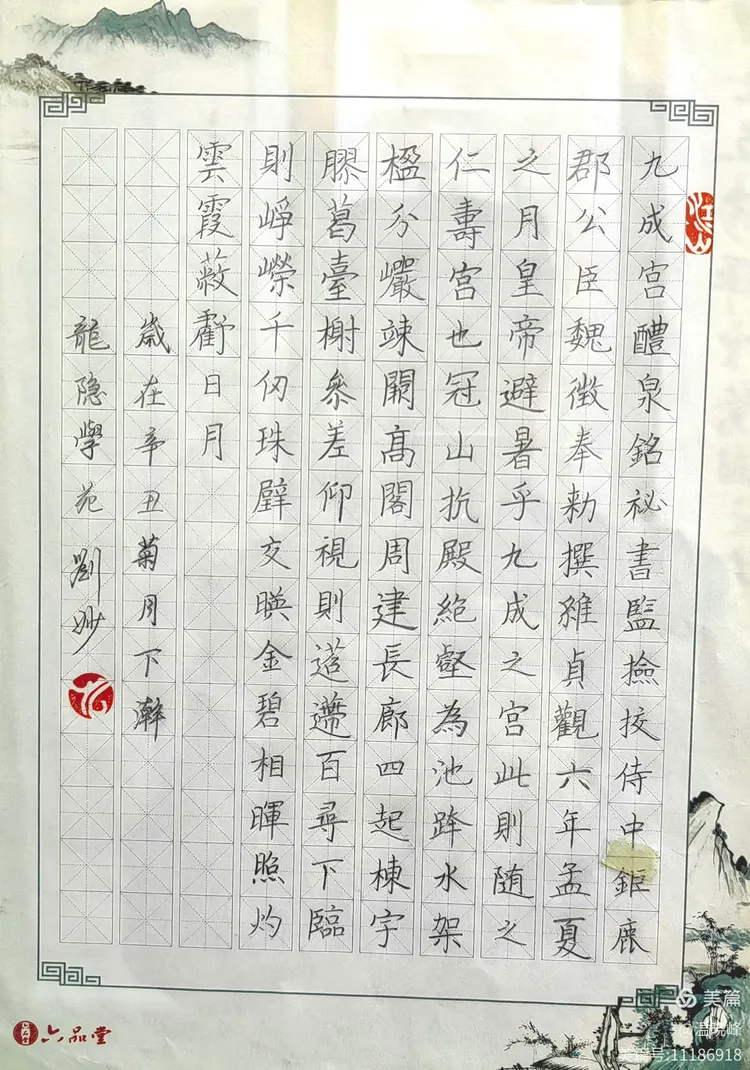 九成宮醴泉銘祕書監撿挍侍中鉅鹿
郡公臣魏徵奉勅撰維貞觀六年孟夏
之月皇帝避暑乎九成之宮此則随之
仁壽宮也冠山抗殿絕壑為池跨水架
楹分巖竦闕高閣周建長廊四起棟宇
膠葛臺榭參差仰視則迢遰百尋下臨
則崢嶸千仞珠璧交暎金碧相暉照灼
雲霞蔽虧日月
歲在辛丑菊月下澣
龍隐學苑劉妙
江山
六品堂
美篇
@温晓峰
美篇号:11186918